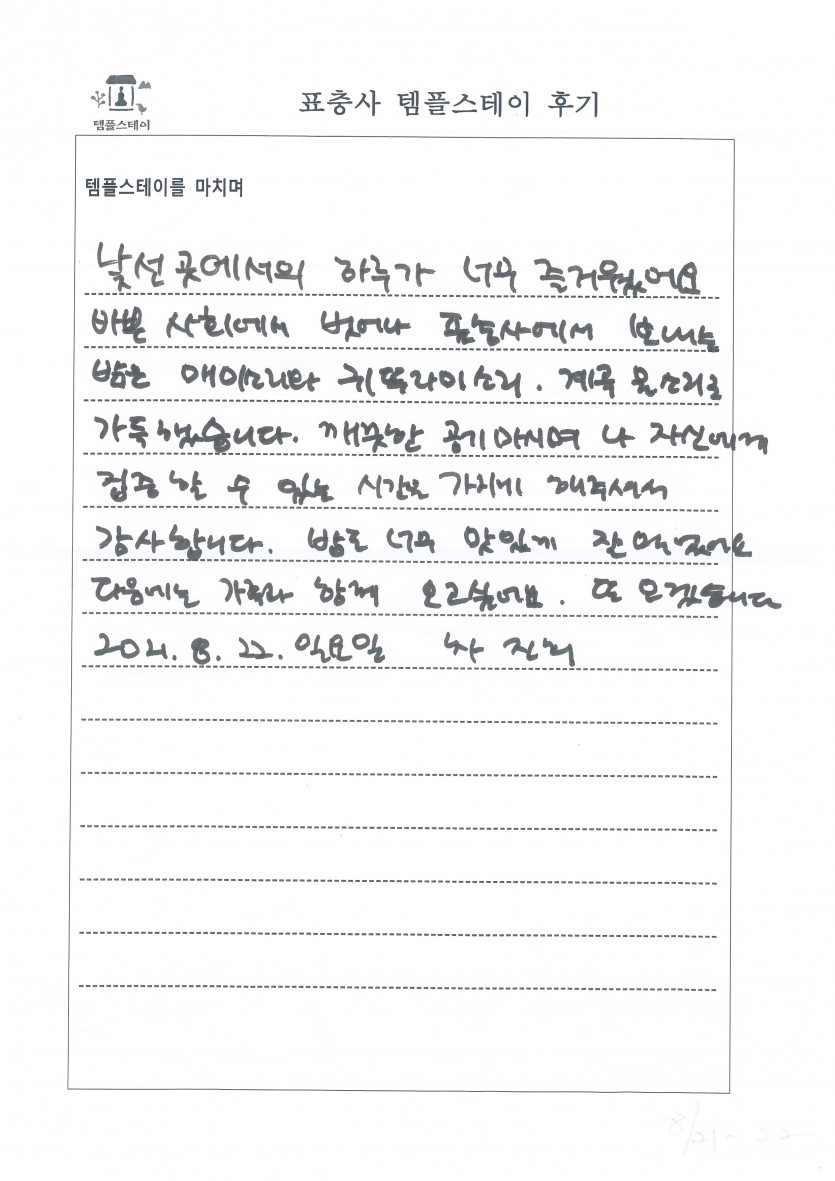 템플스테이
표충사 템플스테이 후기
템플스테이를 마치며
낯선 곳에서의 하루가 너무 즐거웠어요
바쁜 사회에서 벗어나 표충사에서 보내는
밤은 매미소리와 귀뚜라미소리. 계곡 물소리로
가득했습니다. 깨끗한 공기 마시며 나 자신에게
집중 할 수 있는 시간을 가지게 해주셔서
감사합니다. 밥도 너무 맛있게 잘 먹었어요
다음에는 가족과 함께 오고싶어요. 또 오겠습니다
2021. 8. 22. 일요일 차
8/21~22